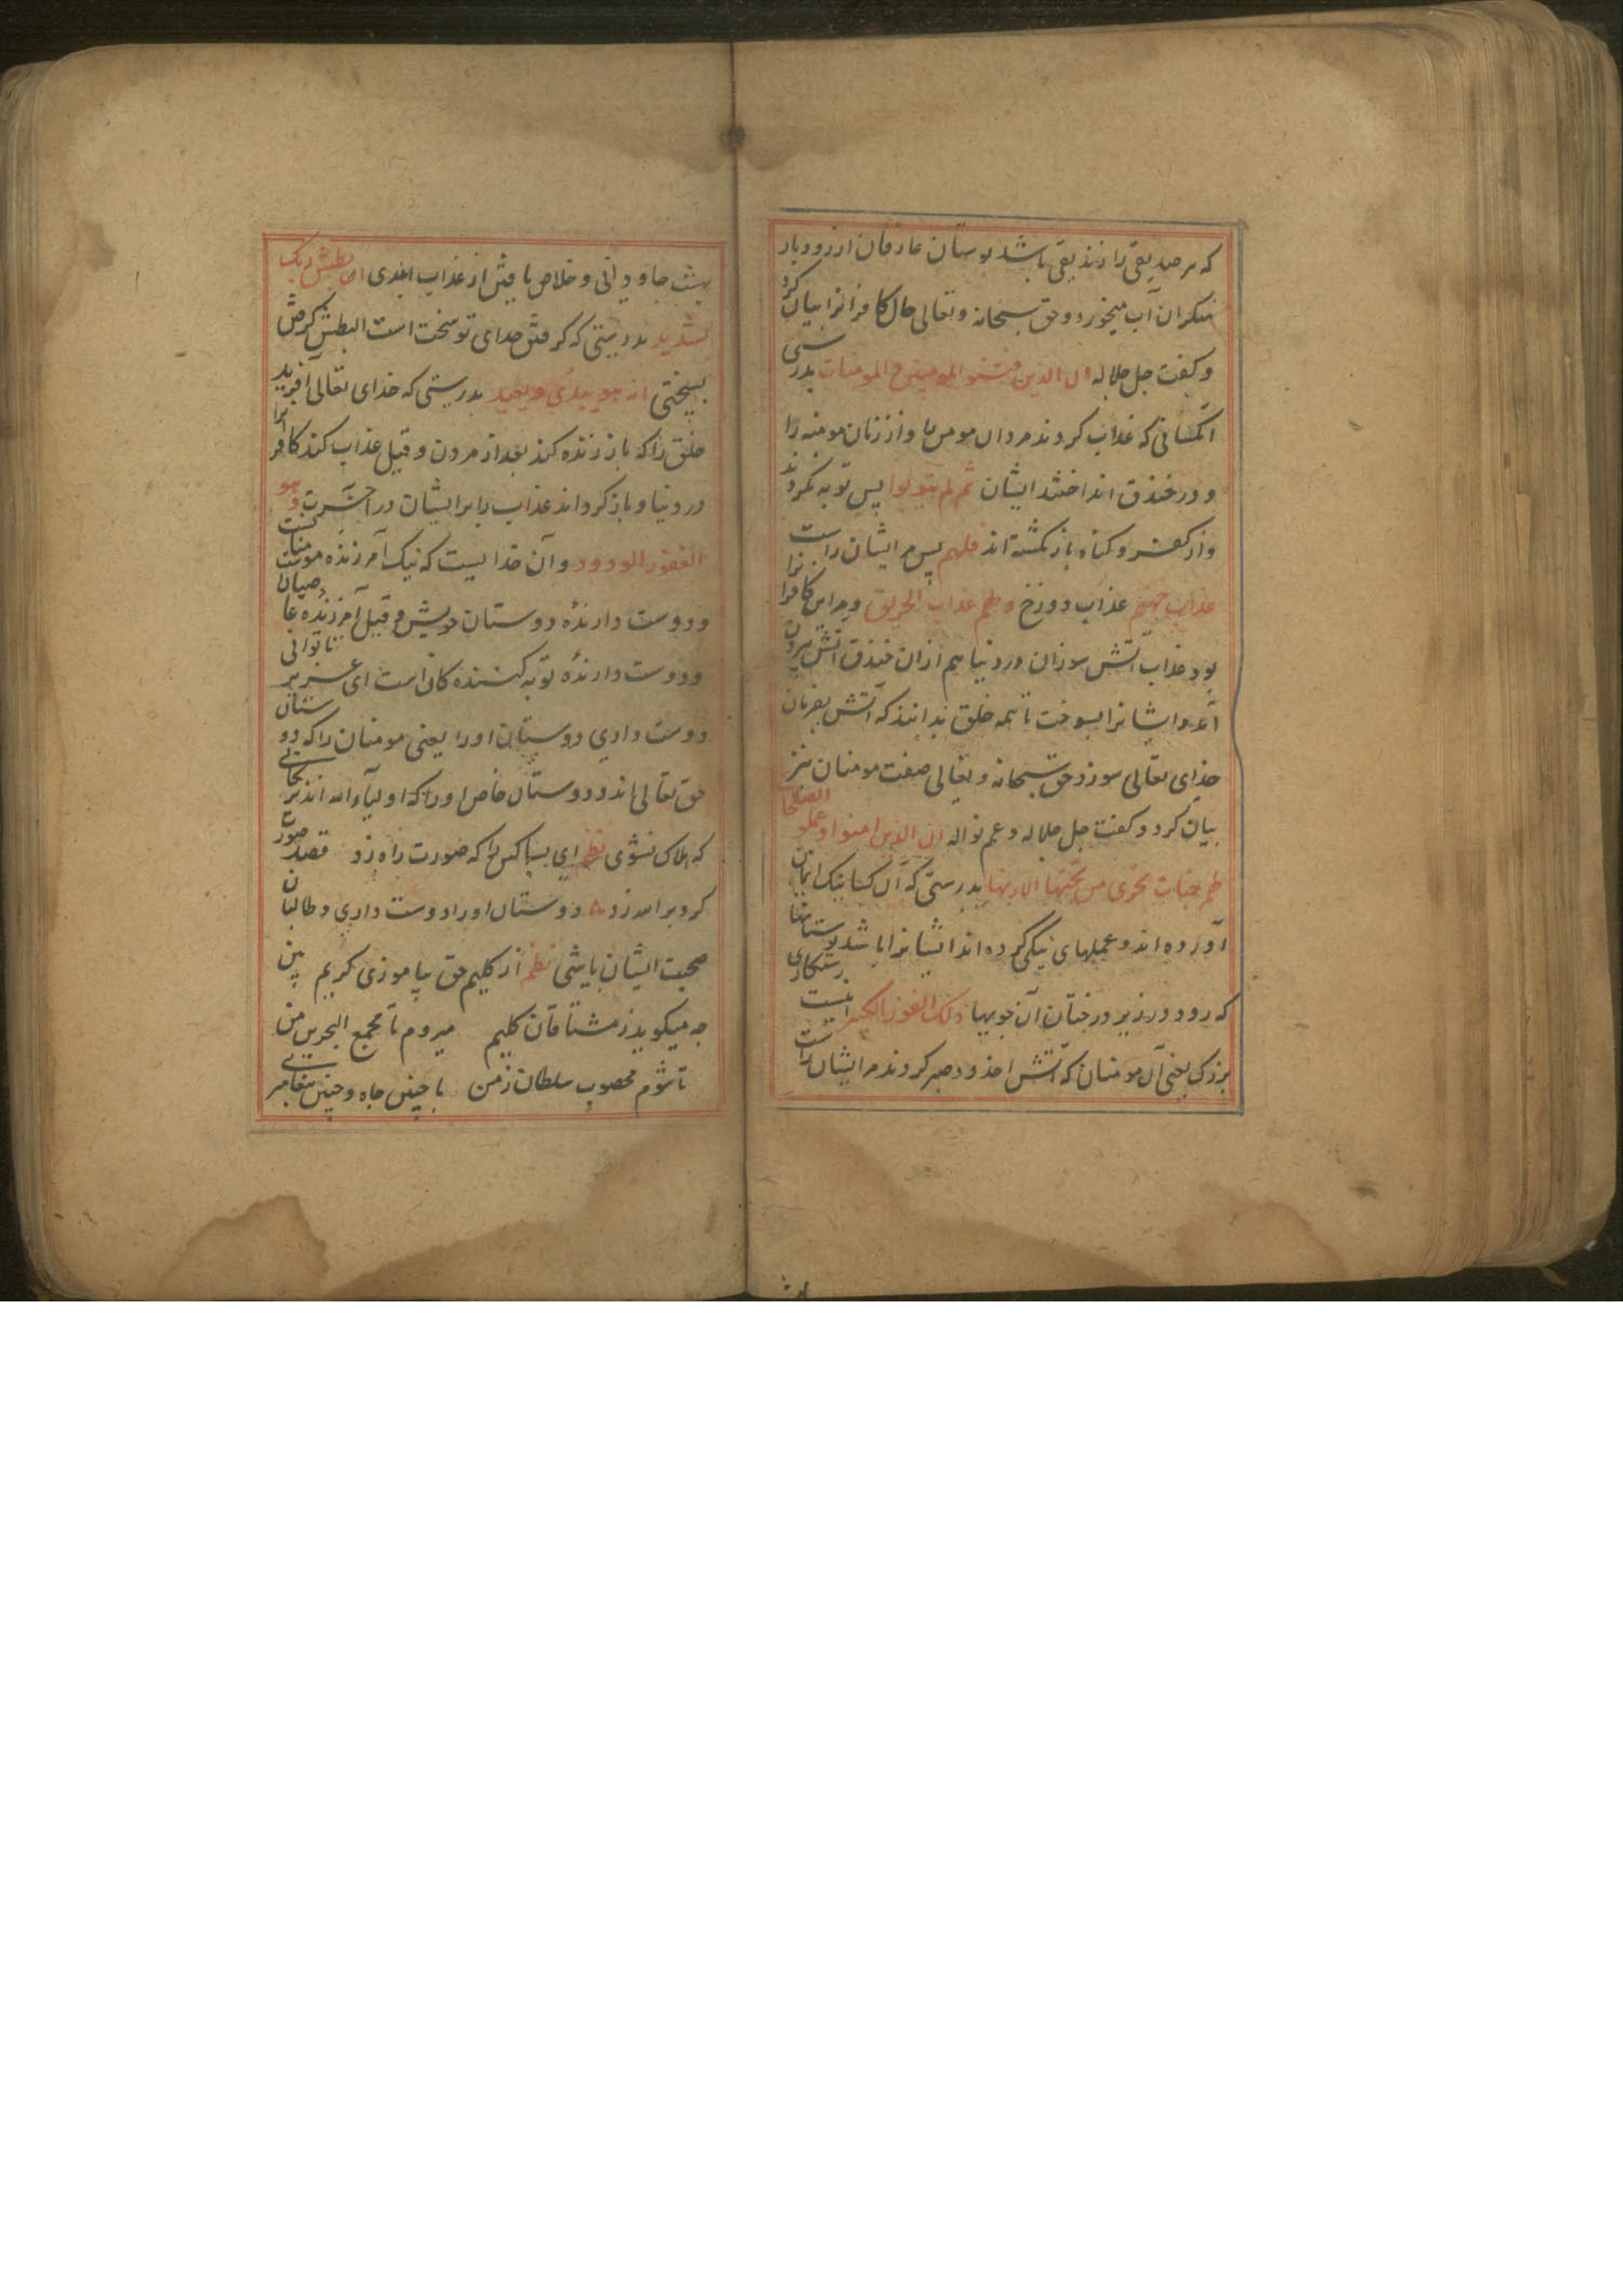 که هر صدیقی را زندیقی باشد بوستان عارفان از رود بار
منکران آب میخورد و حق سبحانه و تعالی حال کافرانرا بیان کرد
و گفت جل جلاله ان الذین فتنوا المومنین و المومنات بدرستی
آنکسانی که عذاب کردند مردان مومن را و از زنان مومنه را
و در خندق انداختند ایشان ثم لم یتوبوا پس توبه نکردند
و از کفر و گناه باز نگشته اند فلهم پس مر ایشان راست
عذاب جهنم عذاب دوزخ و لهم عذاب الحریق و مر این کافرانرا
بود عذاب آتش سوزان در دنیا هم ازان خندق آتش بیرون
آمد و ایشانرا بسوخت تا همه خلق بدانند که آتش بفرمان
خدای تعالی سوزد حق سبحانه و تعالی صفت مومنان نیز
بیان کرد و گفت جل جلاله و عم نواله ان الذین امنوا و عملوا الصالحات
لهم جنات تجری من تحتها الانهار بدرستی که آن کسانیک ایمان
آورده اند و عملهای نیکی کرده اند ایشانرا باشد بوستانها
که رود در زیر درختان آن جویها ذلک الفوز الکبیر اینست رستکاری
بزرک یعنی آن مومنان که آتش اخدود صبر کردند مر ایشان راست
بهشت جاودانی و خلاص یافتن از عذاب ابدی ان بطش ربک
لشدید بدرستی که گرفتن خدای تو سخت است البطش گرفتن
بسختی انه هو یبدئ و یعید بدرستی که خدای تعالی آفرید
خلق را که باز زنده کند بعد از مردن و قیل عذاب کند کافرانرا
در دنیا و باز گرداند عذاب را بر ایشان در آخرت و هو
الغفور الودود و آن خدا ییست که نیک آمرزنده مومنانست
و دوست دارندهٔ دوستان خویش و قیل آمرزنده عاصیان
و دوست دارندهٔ توبه کنندگان است ای عزیز تا توانی
دوست داری دوستان او را یعنی مومنان را که دوستان
حق تعالی اند و دوستان خاص او را که اولیاء الله اند
که هلاک نشوی نظم ای بسا کس را که صورت راه زد قصد صورت
کرد بر الله زد دوستان او را دوست داری و طالبان
صحبت ایشان باشی نظم از کلیم حق بیاموزی کریم بین
چه میگوید ز مشتاقان کلیم میروم تا مجمع البحرین من
تا شوم مصحوب سلطان زمن با چنین جاه و چنین پیغامبری